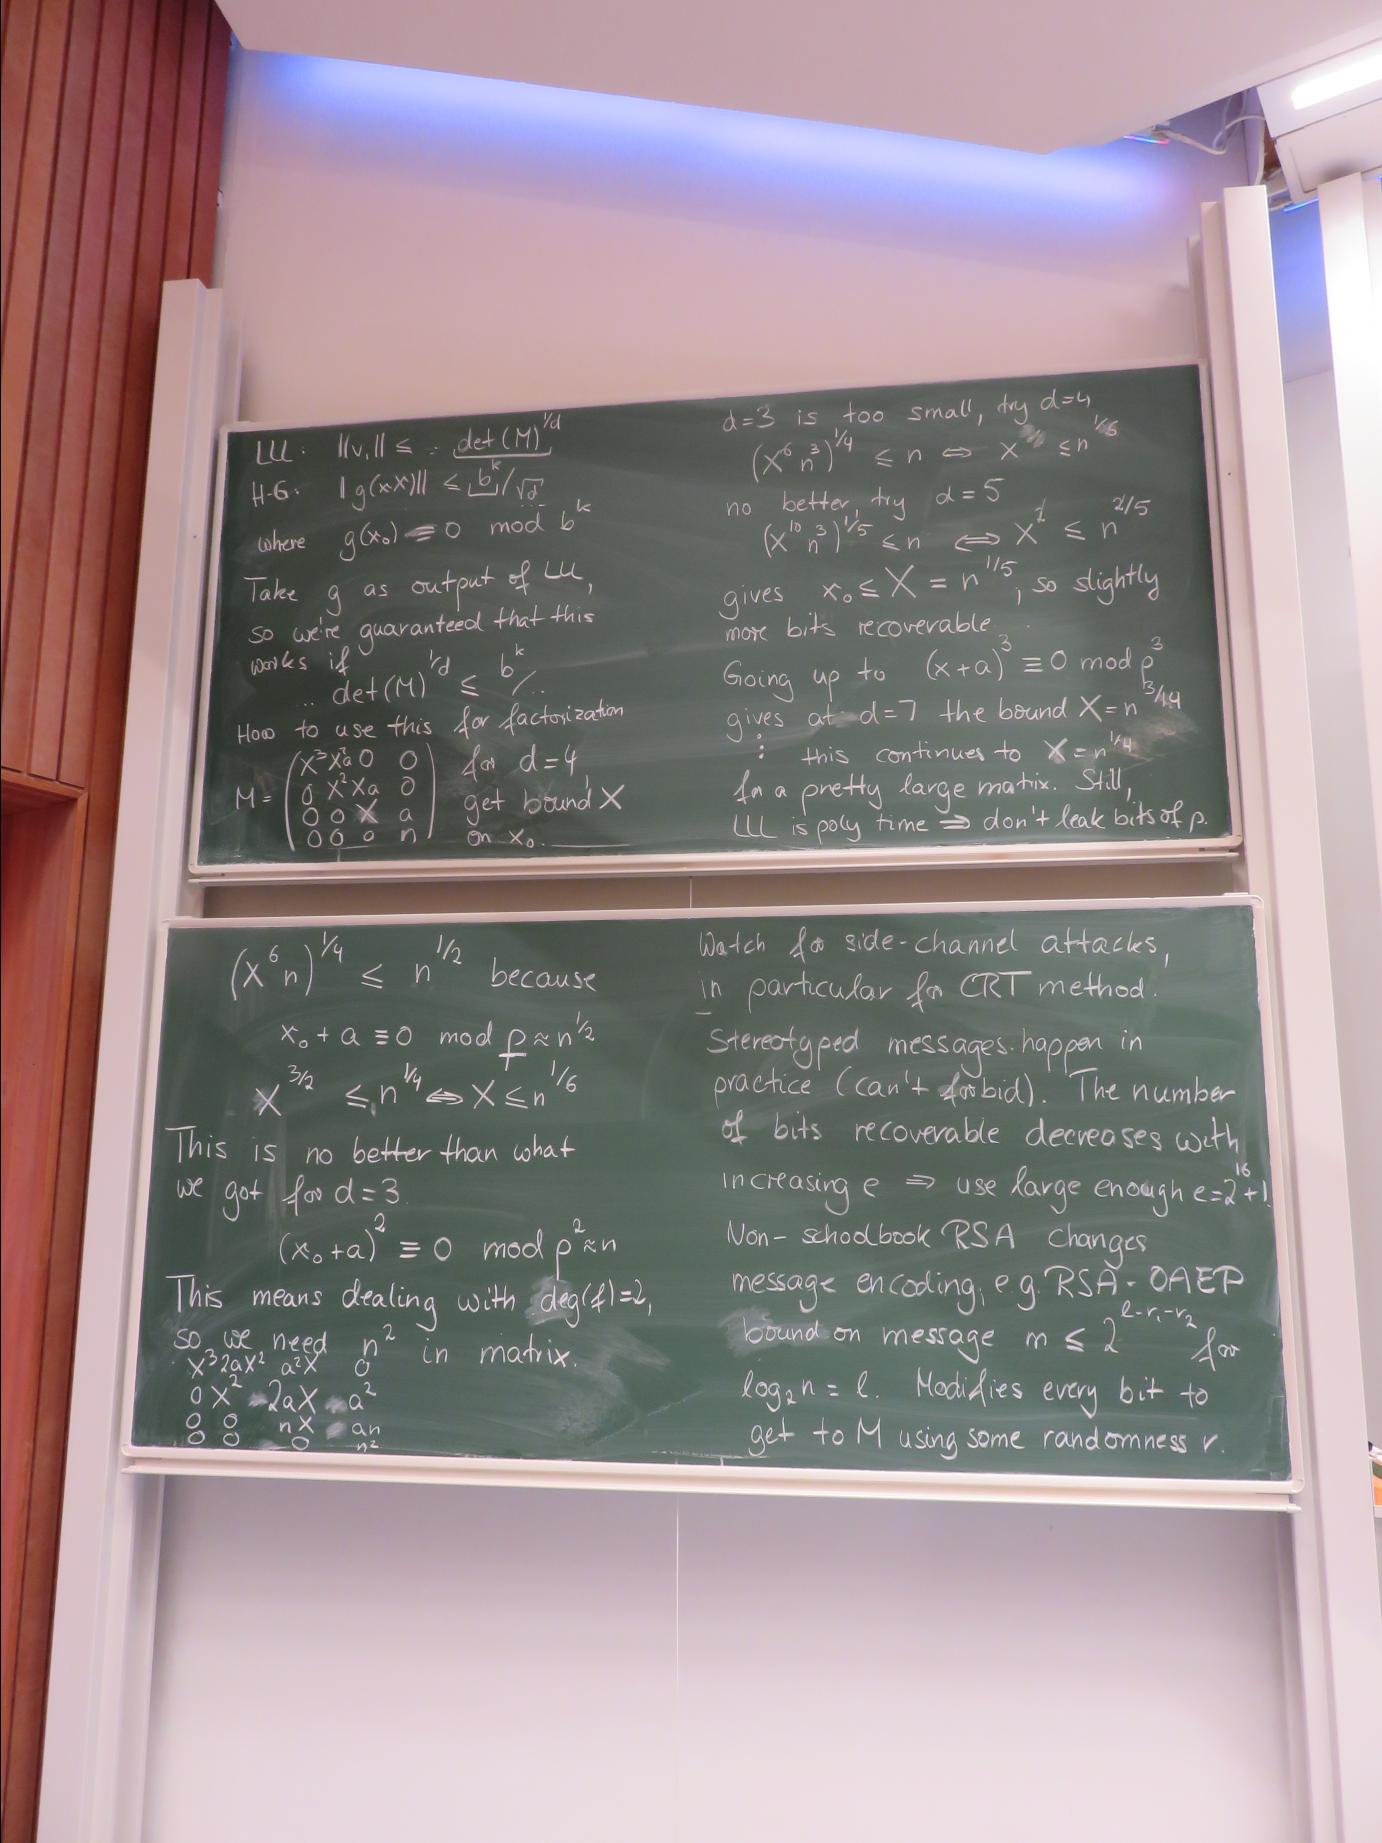 LLL: ||v₁|| ≤ .. det(M)^{1/d}
H-G: ||g(xX)|| ≤ b^k/√d
where g(x₀) ≡ 0 mod b^k
Take g as output of LLL,
so we're guaranteed that this
works if
.. det(M)^{1/d} ≤ b^k/..
How to use this for factorization
M = (X³ X²a 0 0 for d=4,
0 X² Xa 0 get bound X
0 0 X a
0 0 0 n) on x₀.
d=3 is too small, try d=4
(X⁶ n³)^{1/4} ≤ n ⇔ X ≤ n^{1/6}
no better, try d=5
(X^{10} n³)^{1/5} ≤ n ⇔ X² ≤ n^{2/5}
gives x₀ ≤ X = n^{1/5}, so slightly
more bits recoverable.
Going up to (x+a)³ ≡ 0 mod p³
gives at d=7 the bound X=n^{3/14}
⋮ this continues to X=n^{1/4}
for a pretty large matrix. Still,
LLL is poly time ⇒ don't leak bits of p.
(X⁶ n)^{1/4} ≤ n^{1/2} because
x₀ + a ≡ 0 mod p ≈ n^{1/2}
X^{3/2} ≤ n^{1/4} ⇔ X ≤ n^{1/6}
This is no better than what
we got for d=3.
(x₀+a)² ≡ 0 mod p² ≈ n
This means dealing with deg(f)=2,
so we need n² in matrix.
X³ 2aX² a²X 0
0 X² 2aX a²
0 0 nX an
0 0 0 n²
Watch for side-channel attacks,
in particular for CRT method.
Stereotyped messages happen in
practice (can't forbid). The number
of bits recoverable decreases with
increasing e ⇒ use large enough e=2^{16}+1.
Non-schoolbook RSA changes
message encoding, e.g. RSA-OAEP
bound on message m ≤ 2^{ℓ-r₁-r₂} for
log₂n = ℓ. Modifies every bit to
get to M using some randomness r.